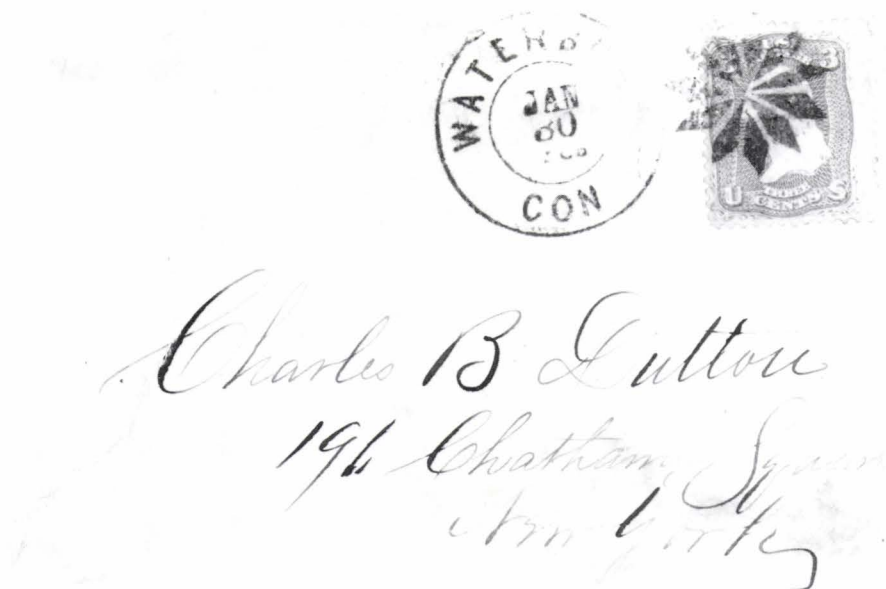 WATERB
JAN
30
CON
U S
CENTS
Charles B Dutton
196 Chatham Square
New York